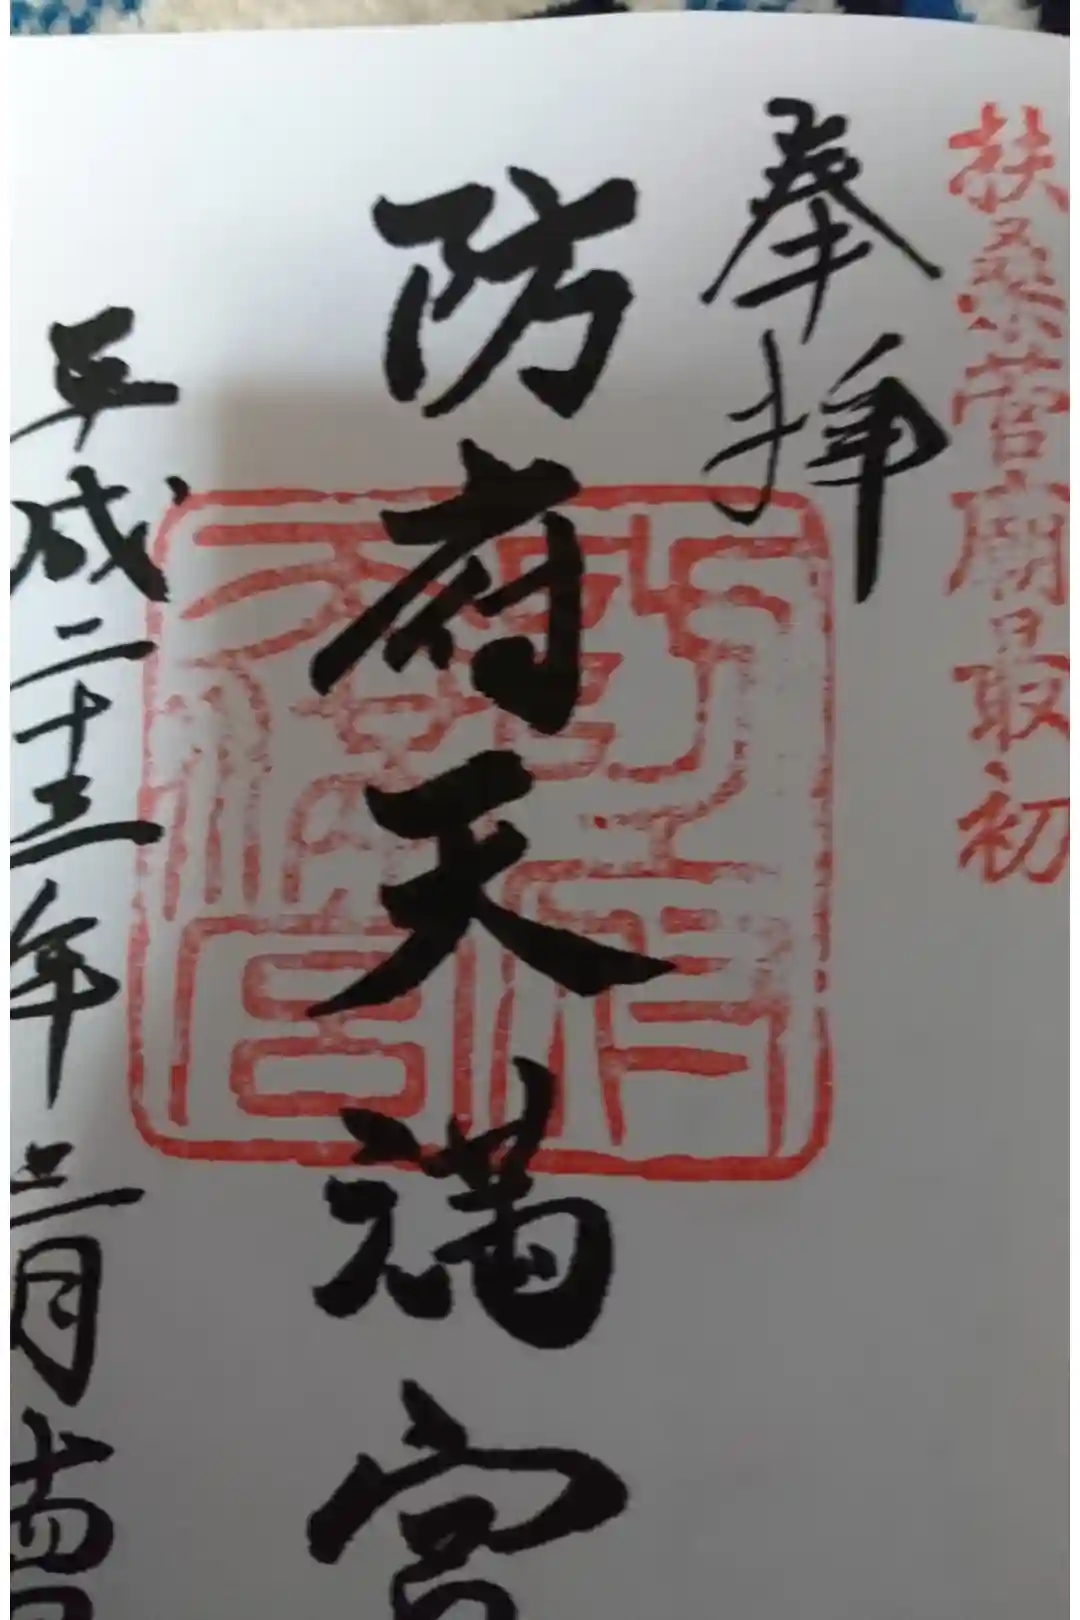 扶桑菅廟最初
奉拝
防府天満宮
平成二十三年三月十四日